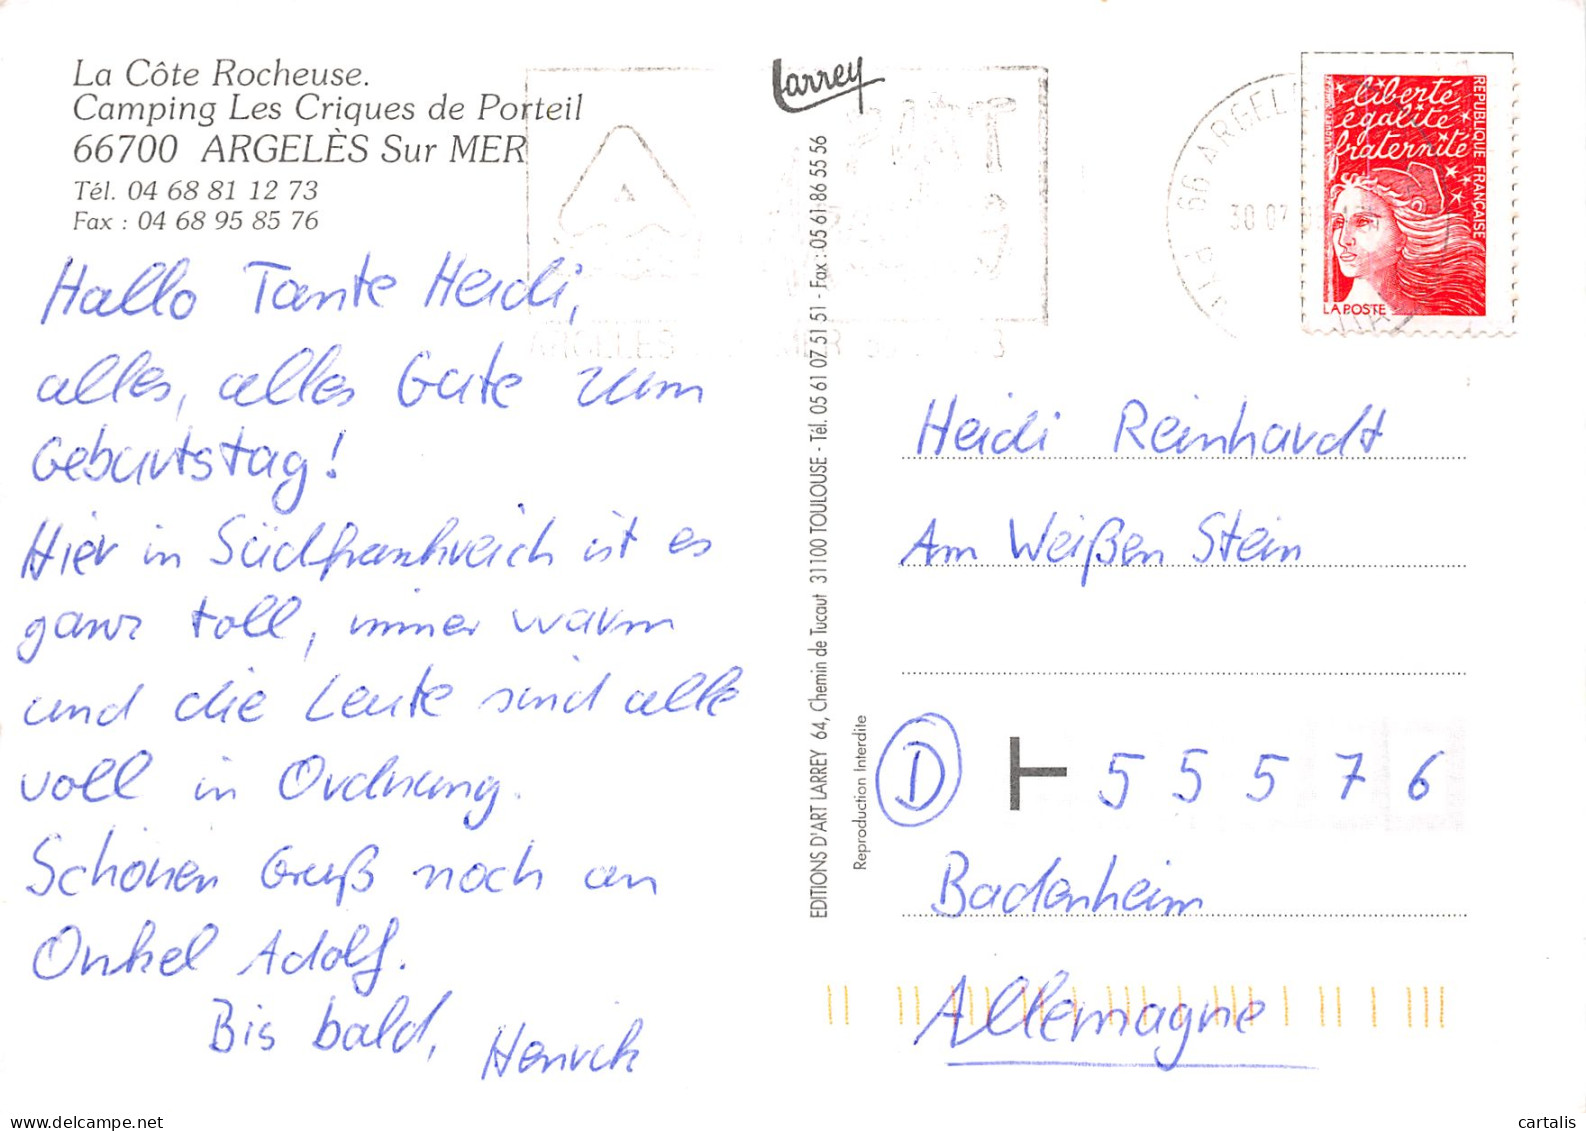 La Côte Rocheuse.
Camping Les Criques de Porteil
66700 ARGELÈS Sur MER
Tél. 04 68 81 12 73
Fax : 04 68 95 85 76
Hallo Tante Heidi,
alles, alles Gute zum
Geburtstag!
Hier in Südfrankreich ist es
ganz toll, immer warm
und die Leute sind alle
voll in Ordnung.
Schönen Gruß noch an
Onkel Adolf.
Bis bald,
Henrik
Larrey
EDITIONS D'ART LARREY 64, Chemin de Tucaut 31100 TOULOUSE - Tél. 05 61 07 51 51 - Fax : 05 61 86 55 56
Reproduction Interdite
ARGELES MER
66 ARGELES
30 07
liberté
égalité
fraternité
REPUBLIQUE FRANÇAISE
LA POSTE
Heidi Reinhardt
Am Weißen Stein
D 55576
Badenheim
Allemagne
delcampe.net
cartalis